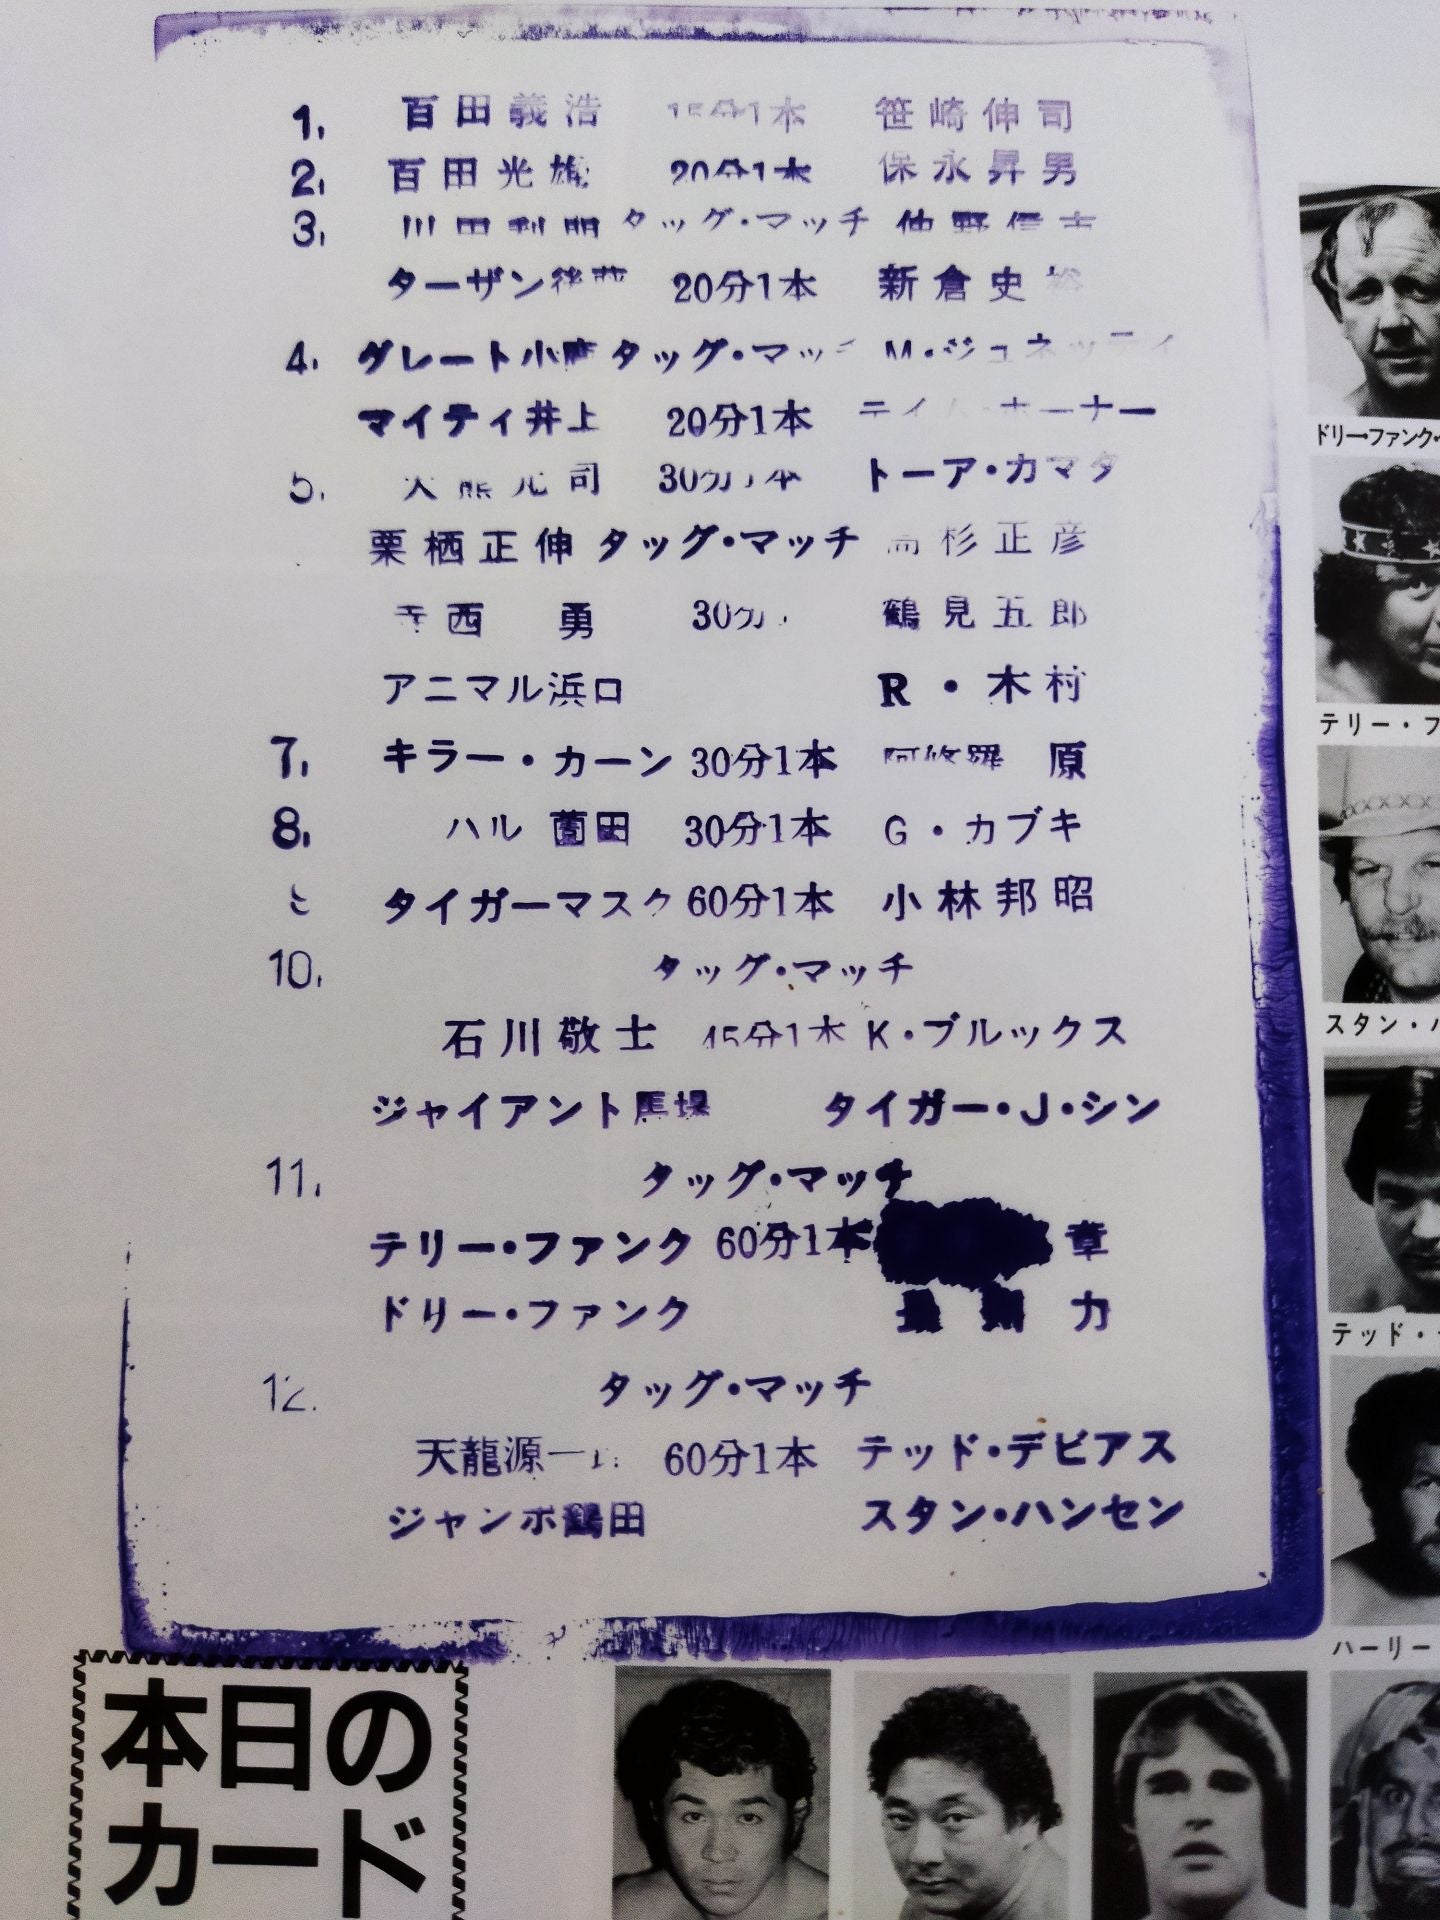 1. 百田義浩 15分1本 笹崎伸司
2. 百田光雄 20分1本 保永昇男
3. 川田利明 タッグ・マッチ 仲野信吉
ターザン後藤 20分1本 新倉史裕
4. グレート小鹿 タッグ・マッチ M・ジェネッティ
マイティ井上 20分1本 ティム・ホーナー
5. 大熊元司 30分1本 トーア・カマタ
栗栖正伸 タッグ・マッチ 高杉正彦
寺西 勇 30分 鶴見五郎
アニマル浜口 R・木村
7. キラー・カーン 30分1本 阿修羅 原
8. ハル 薗田 30分1本 G・カブキ
タイガーマスク 60分1本 小林邦昭
10. タッグ・マッチ
石川敬士 45分1本 K・ブルックス
ジャイアント馬場 タイガー・J・シン
11. タッグ・マッチ
テリー・ファンク 60分1本 章
ドリー・ファンク 長州力
12. タッグ・マッチ
天龍源一郎 60分1本 テッド・デビアス
ジャンボ鶴田 スタン・ハンセン
本日の
カード
ドリー・ファンク・
テリー・フ
スタン・ハ
テッド・
ハーリー